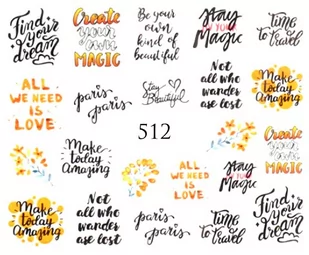 Find
your
dream
Create
your
own
MAGIC
Be your
own
kind of
beautiful
Stay
Magic
Time
to Travel
ALL
WE NEED
IS
LOVE
paris
paris
Stay
Beautiful
Not
all who
wander
ase lost
Make
today
Amazing
512
Make
today
Amazing
Create
your
own
MAGIC
Make
today
Amazing
Not
all who
wander
ase lost
paris
paris
ALL
WE NEED
IS
LOVE
Stay
Magic
Time
to Travel
Find
your
dream